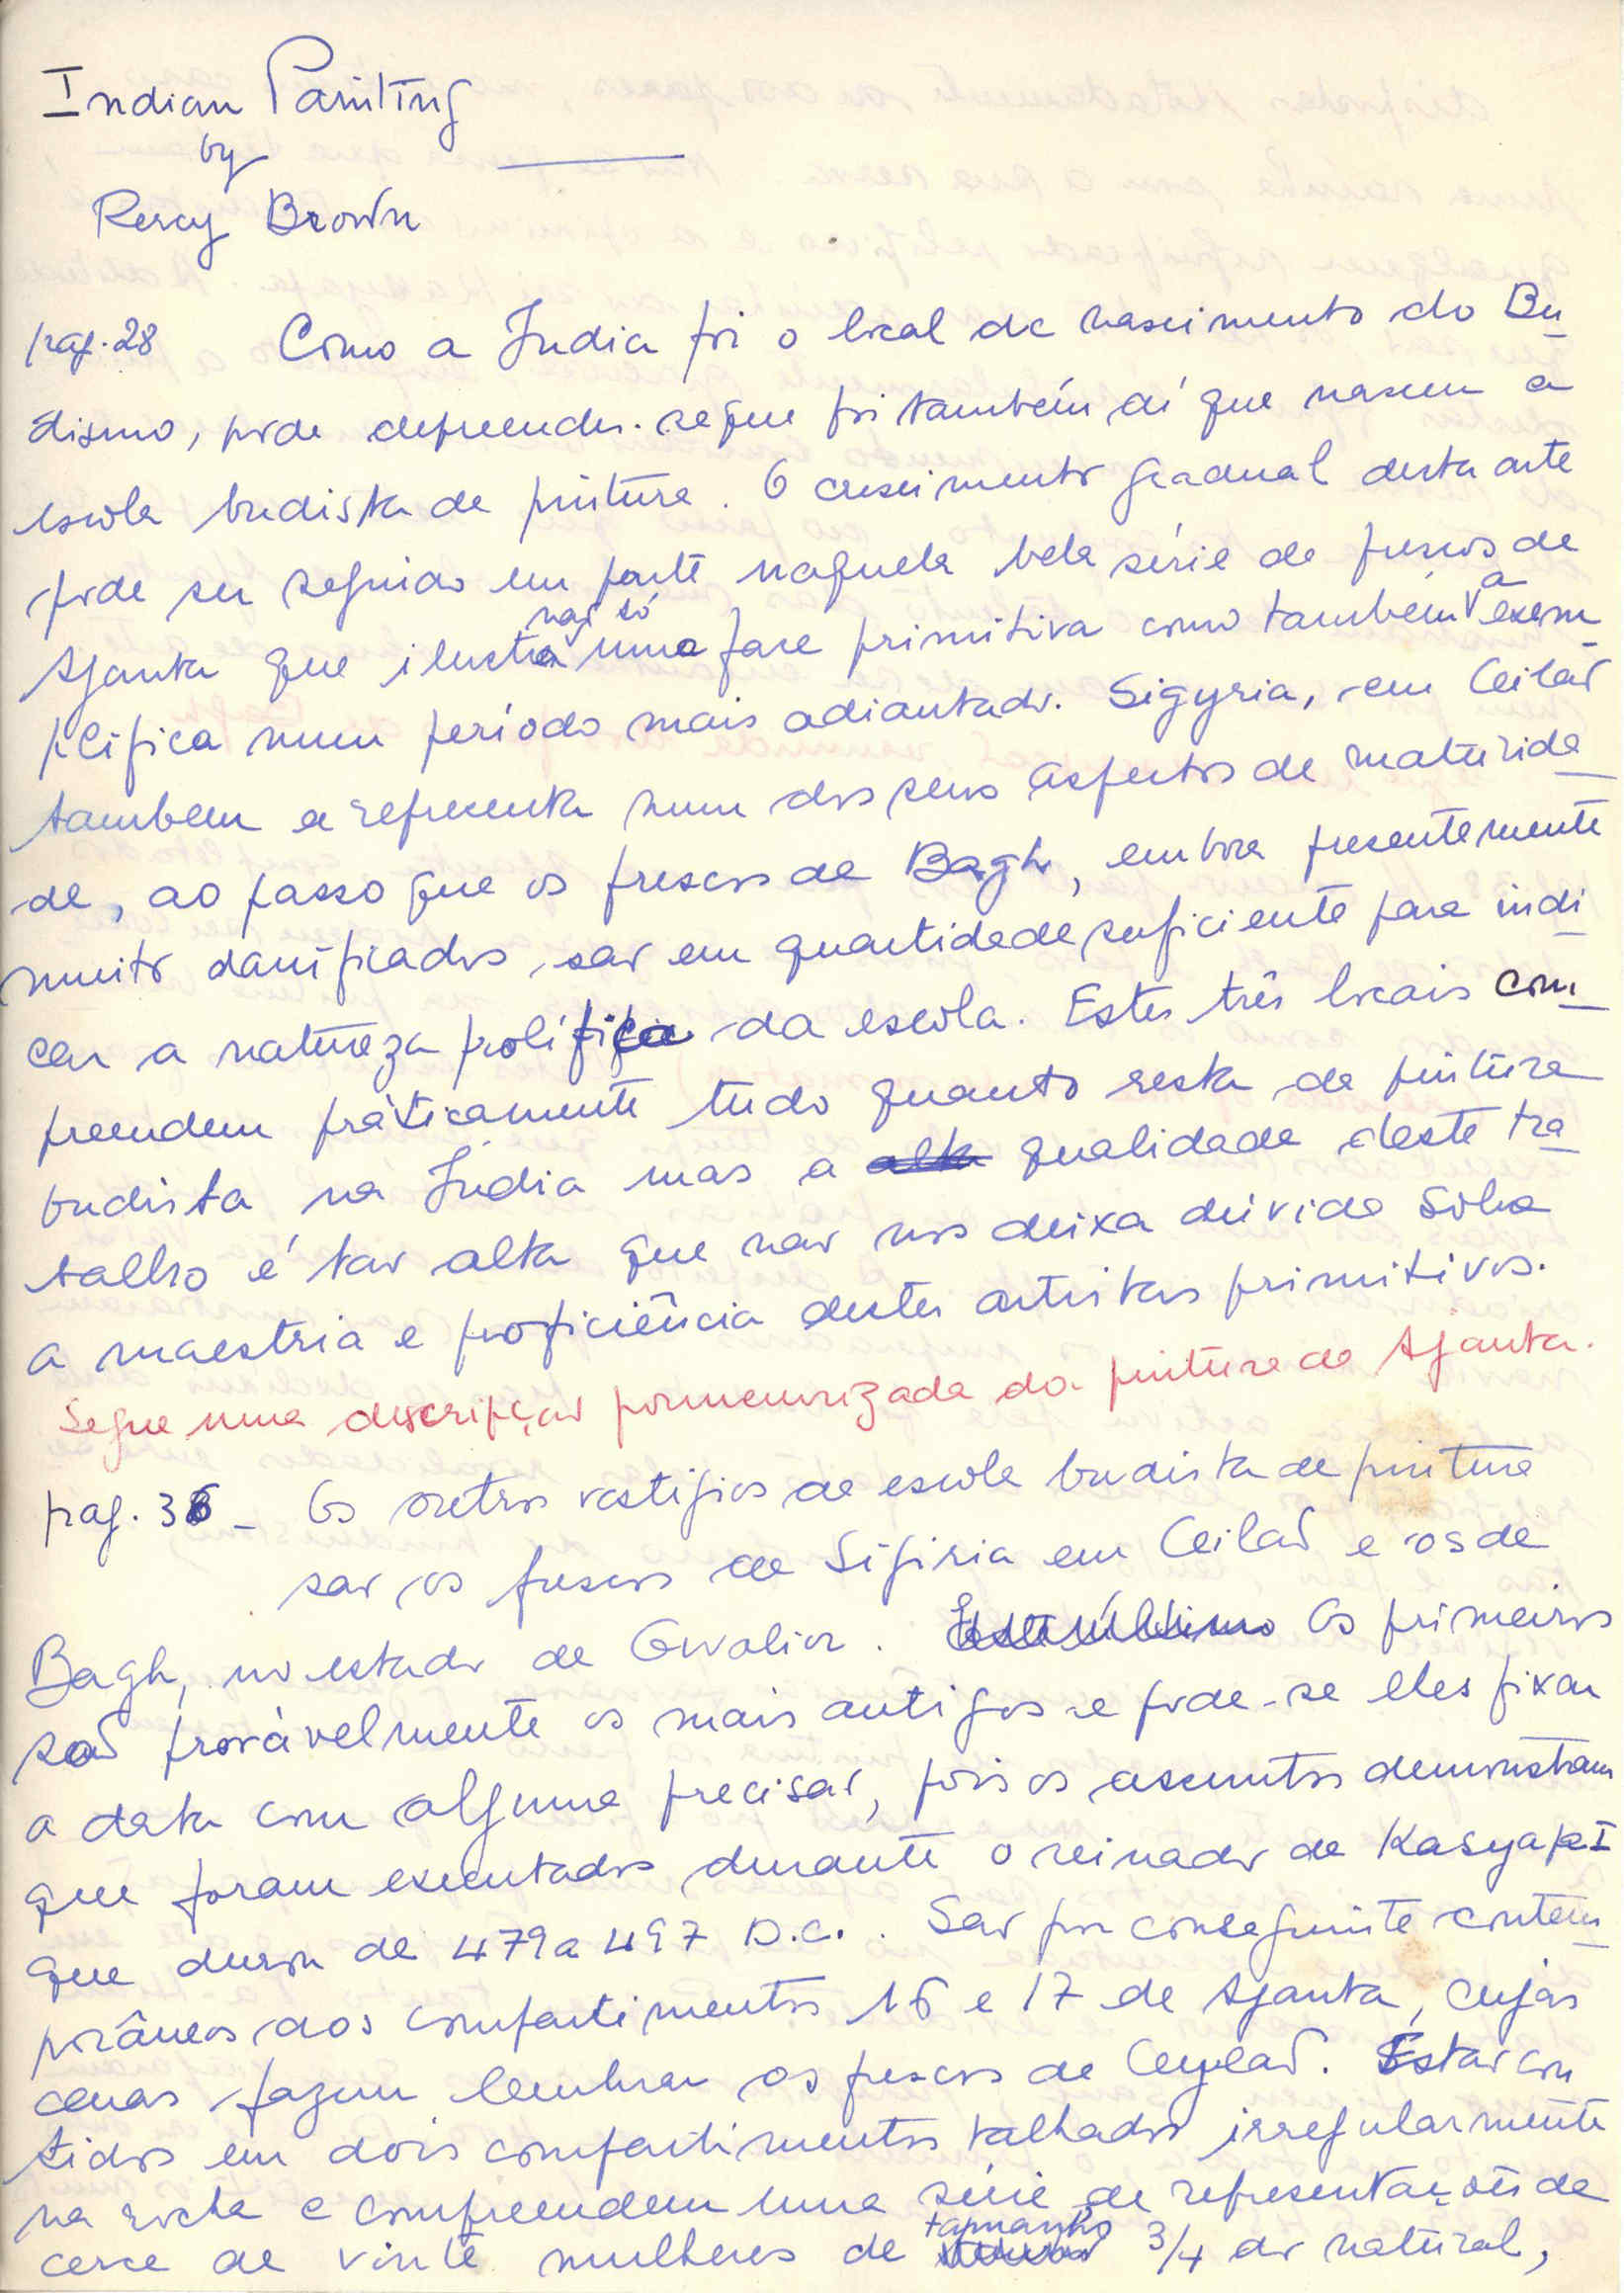 Indian Painting
by
Percy Brown
pag. 28 Como a Índia foi o local de nascimento do Bu-
dismo, pode depreender-se que foi também aí que nasceu a
escola budista de pintura. O crescimento gradual desta arte
pode ser seguido em parte naquela bela série de frescos de
Ajanta que ilustra não só uma fase primitiva como também a exem-
plifica num período mais adiantado. Sigyria, em Ceilão
tambem a representa num dos seus aspectos de maturida-
de, ao passo que os frescos de Bagh, embora presentemente
muito danificados, são em quantidade suficiente para indi-
car a natureza prolífica da escola. Estes três locais com-
preendem pràticamente tudo quanto resta da pintura
budista na Índia mas a alta qualidade deste tra-
balho é tão alta que não nos deixa dúvida sobre
a maestria e proficiência destes artistas primitivos.
Segue uma descripção pormenorizada da pintura de Ajanta.
pag. 36 - Os outros vestígios da escola budista de pintura
são os frescos de Sigiria em Ceilão e os de
Bagh, no estado de Gwalior. Este último Os primeiros
são provàvelmente os mais antigos e pode-se eles fixar
a data com alguma precisão, pois os assuntos demonstram
que foram executados durante o reinado de Kasyapa I
que durou de 479 a 497 D.C.. São por conseguinte contem-
porâneos aos compartimentos 16 e 17 de Ajanta, cujas
cenas fazem lembrar os frescos de Ceylão. Estão con
tidos em dois compartimentos talhados irregularmente
na rocha e compreendem uma série de representações de
cerca de vinte mulheres de tamanho 3/4 do natural,